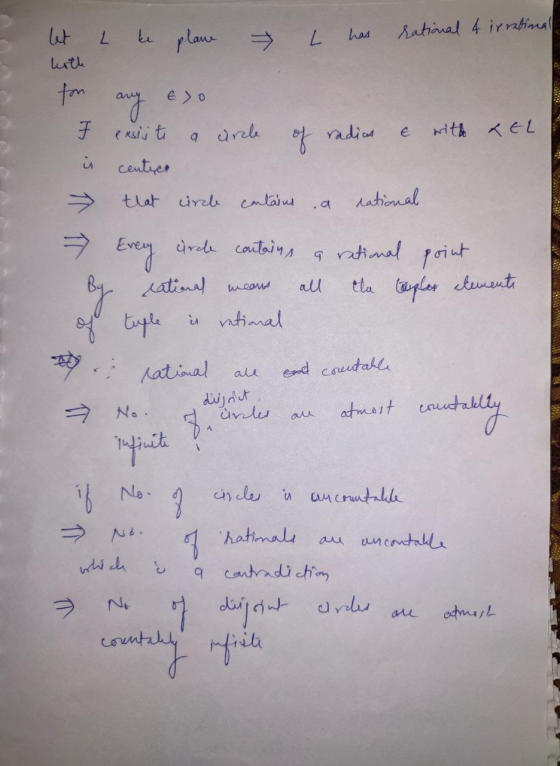 let L be plane ⇒ L has rational & irrational
both
for any ε > 0
∃ exists a circle of radius ε with α ∈ L
is center
⇒ that circle contains a rational
⇒ Every circle contains a rational point
By rational means all the elements
of tuple is rational
∴ rational are countable
⇒ No. of disjoint circles are atmost countablly
infinite
if No. of circles is uncountable
⇒ No. of rationals are uncontable
which is a contradiction
⇒ No of disjoint circles are atmost
countably infinite